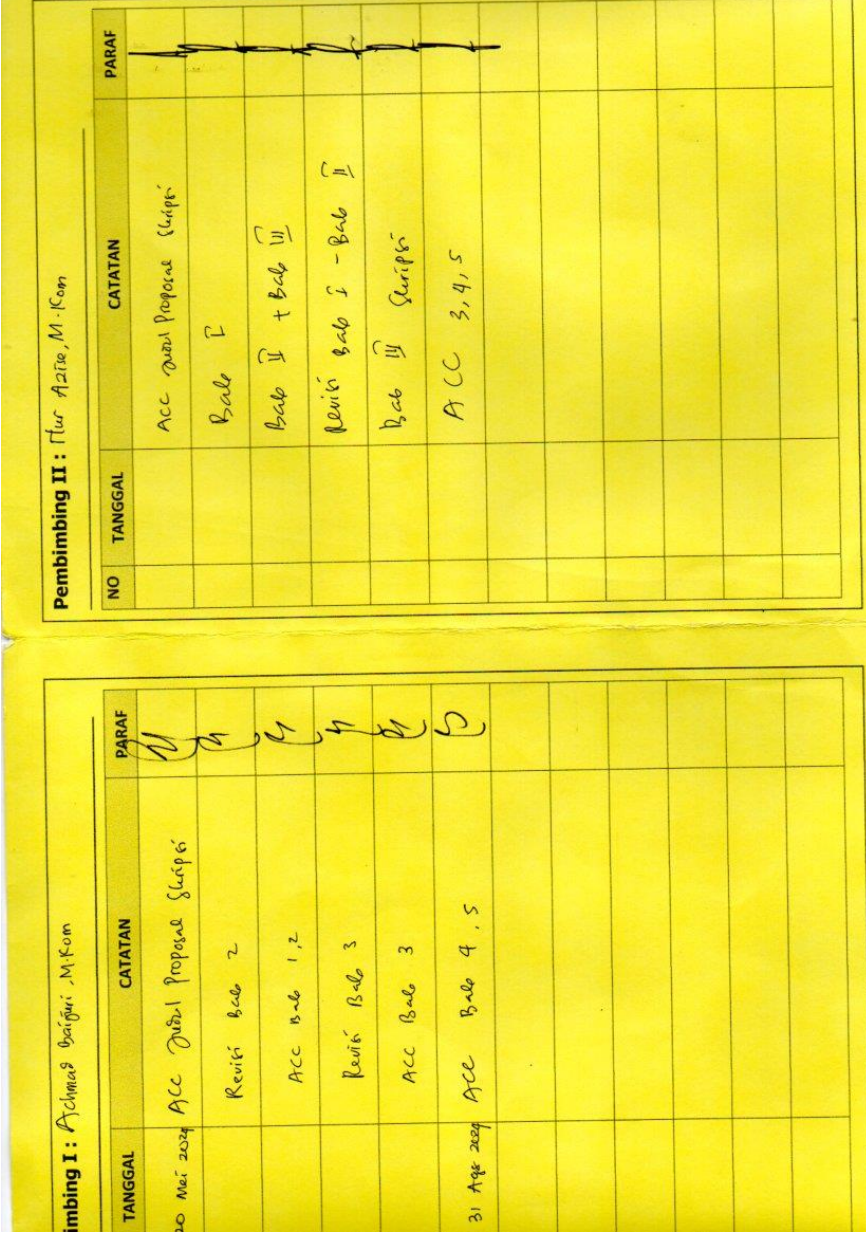 imbing I : Achmad Baijuri, M.Kom
TANGGAL CATATAN PARAF
20 Mei 2024 ACC Judul Proposal Skripsi
Revisi Bab 2
ACC Bab 1,2
Revisi Bab 3
ACC Bab 3
31 Ags 2024 ACC Bab 4, 5
Pembimbing II : Nur Azise, M.Kom
NO TANGGAL CATATAN PARAF
Acc Judul Proposal Skripsi
Bab I
Bab II + Bab III
Revisi Bab I - Bab II
Bab III Skripsi
ACC 3, 4, 5